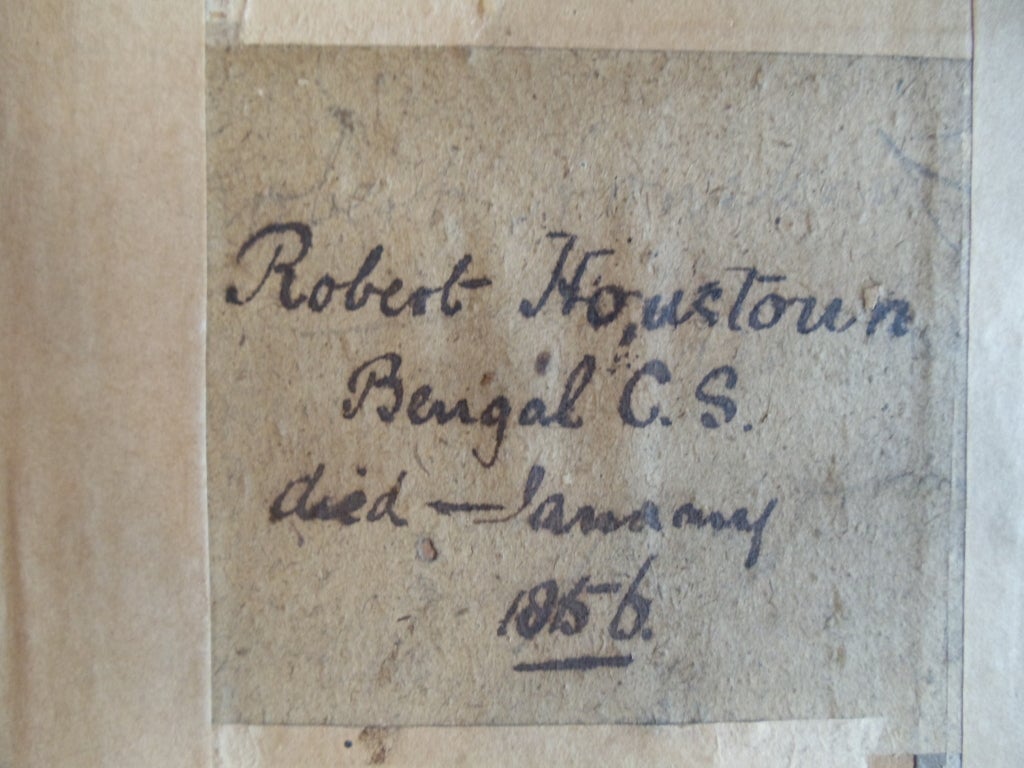 Robert Houstoun
Bengal C. S.
died — January
1856.